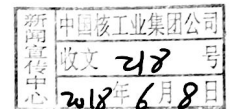 新闻宣传中心
中国核工业集团公司
收文 218 号
2018年6月8日